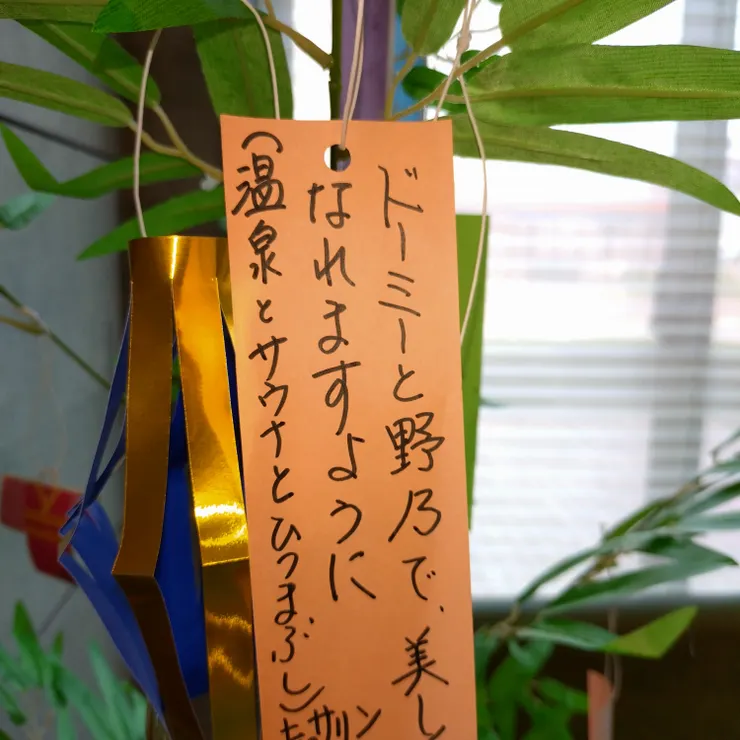 ドーミーと野乃で、美し
なれますように
(温泉とサウナとひつまぶし)
サリン